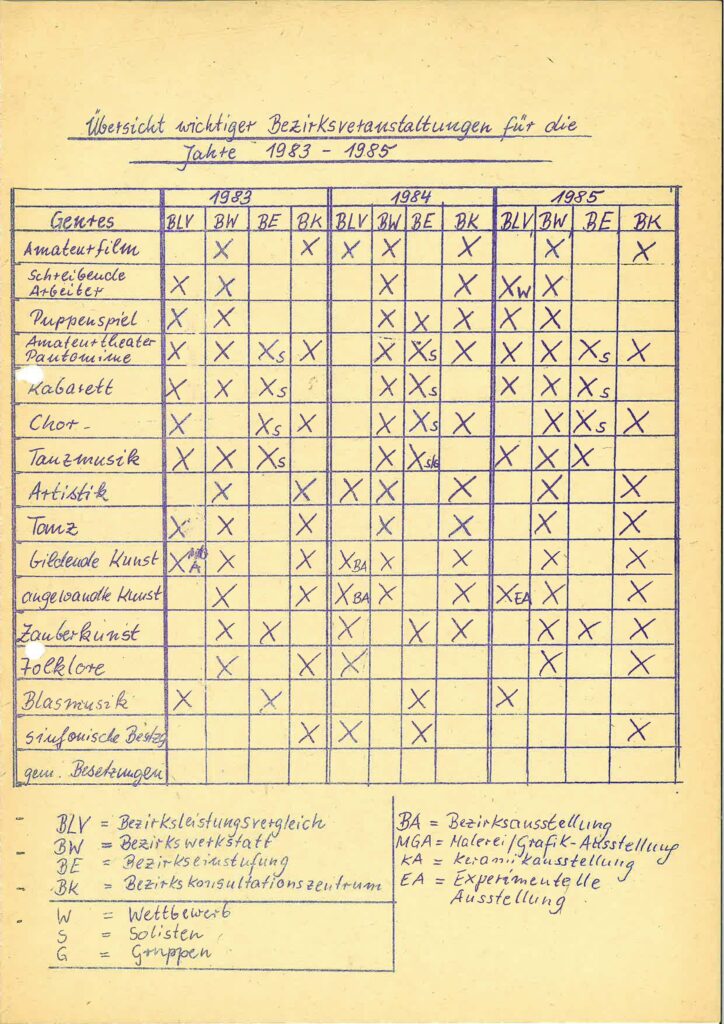 Übersicht wichtiger Bezirksveranstaltungen für die
Jahre 1983 - 1985
1983 1984 1985
Genres BLV BW BE BK BLV BW BE BK BLV BW BE BK
Amateurfilm X X X X X X X
Schreibende
Arbeiter X X X X XW X
Puppenspiel X X X X X X X
Amateurtheater
Pantomime X X XS X X XS X X X XS X
Kabarett X X XS X XS X X XS
Chor - X XS X X XS X X XS X
Tanzmusik X X XS X XS/G X X X
Artistik X X X X X X X
Tanz X X X X X X X
bildende Kunst X A X X XBA X X X X
angewandte Kunst X X XBA X X XEA X X
Zauberkunst X X X X X X X X
Folklore X X X X X
Blasmusik X X X X
sinfonische Bestzg X X X X
gem. Besetzungen
- BLV = Bezirksleistungsvergleich
BW = Bezirkswerkstatt
- BE = Bezirkseinstufung
- BK = Bezirkskonsultationszentrum
- W = Wettbewerb
S = Solisten
G = Gruppen
BA = Bezirksausstellung
MGA = Malerei/Grafik-Ausstellung
KA = Keramikausstellung
EA = Experimentelle
Ausstellung